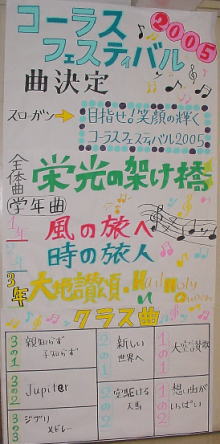 コーラス
フェスティバル
2005
曲決定
スローガン→
目指せ！笑顔の輝く
コーラスフェスティバル2005
全体曲
栄光の架け橋
学年曲
1年
風の旅人
時の旅人
3年
大地讃頌
クラス曲
3の1
親知らず
子知らず
3の2
Jupiter
3の3
ジブリ
メドレー
2の1
新しい
世界へ
2の2
空駆ける
天馬
1の1
大空讃歌
1の2
想い出が
いっぱい